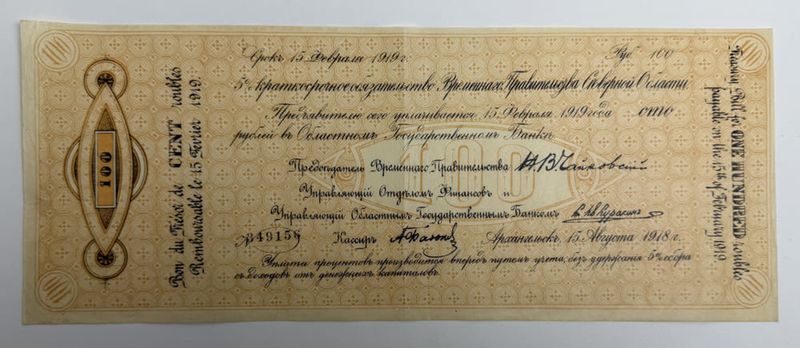 Срокъ 15 Февраля 1919 г. Руб. 100
5% краткосрочное обязательство Временнаго Правительства Сѣверной Области.
Предъявителю сего уплачивается 15 Февраля 1919 года сто
рублей въ Областномъ Государственномъ Банкѣ
Предсѣдатель Временнаго Правительства Н. В. Чайковскій
Управляющій Отдѣломъ Финансовъ и
Управляющій Областнымъ Государственнымъ Банкомъ
№ 49158 Кассиръ Архангельскъ, 15 Августа 1918 г.
Уплата процентовъ производится впередъ путемъ учета, безъ удержанія 5% сбора
съ доходовъ отъ денежныхъ капиталовъ.
100
Bon du Trésor de CENT roubles
Remboursable le 15 Février 1919.
Treasury Bill for ONE HUNDRED roubles
payable on the 15th of February 1919
100
100
100
100
100